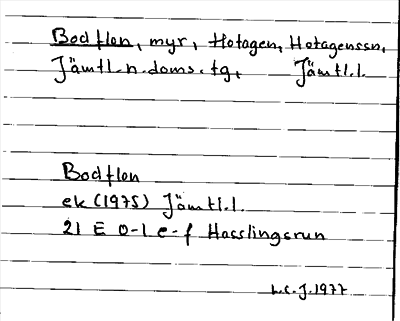 Bodflon, myr, Hotagen, Hotagenssn,
Jämtl. n. doms. tg, Jämtl. l.
Bodflon
ek (1975) Jämtl. l.
21 E 0-1 e-f Hasslingsrun
L.C.J. 1977